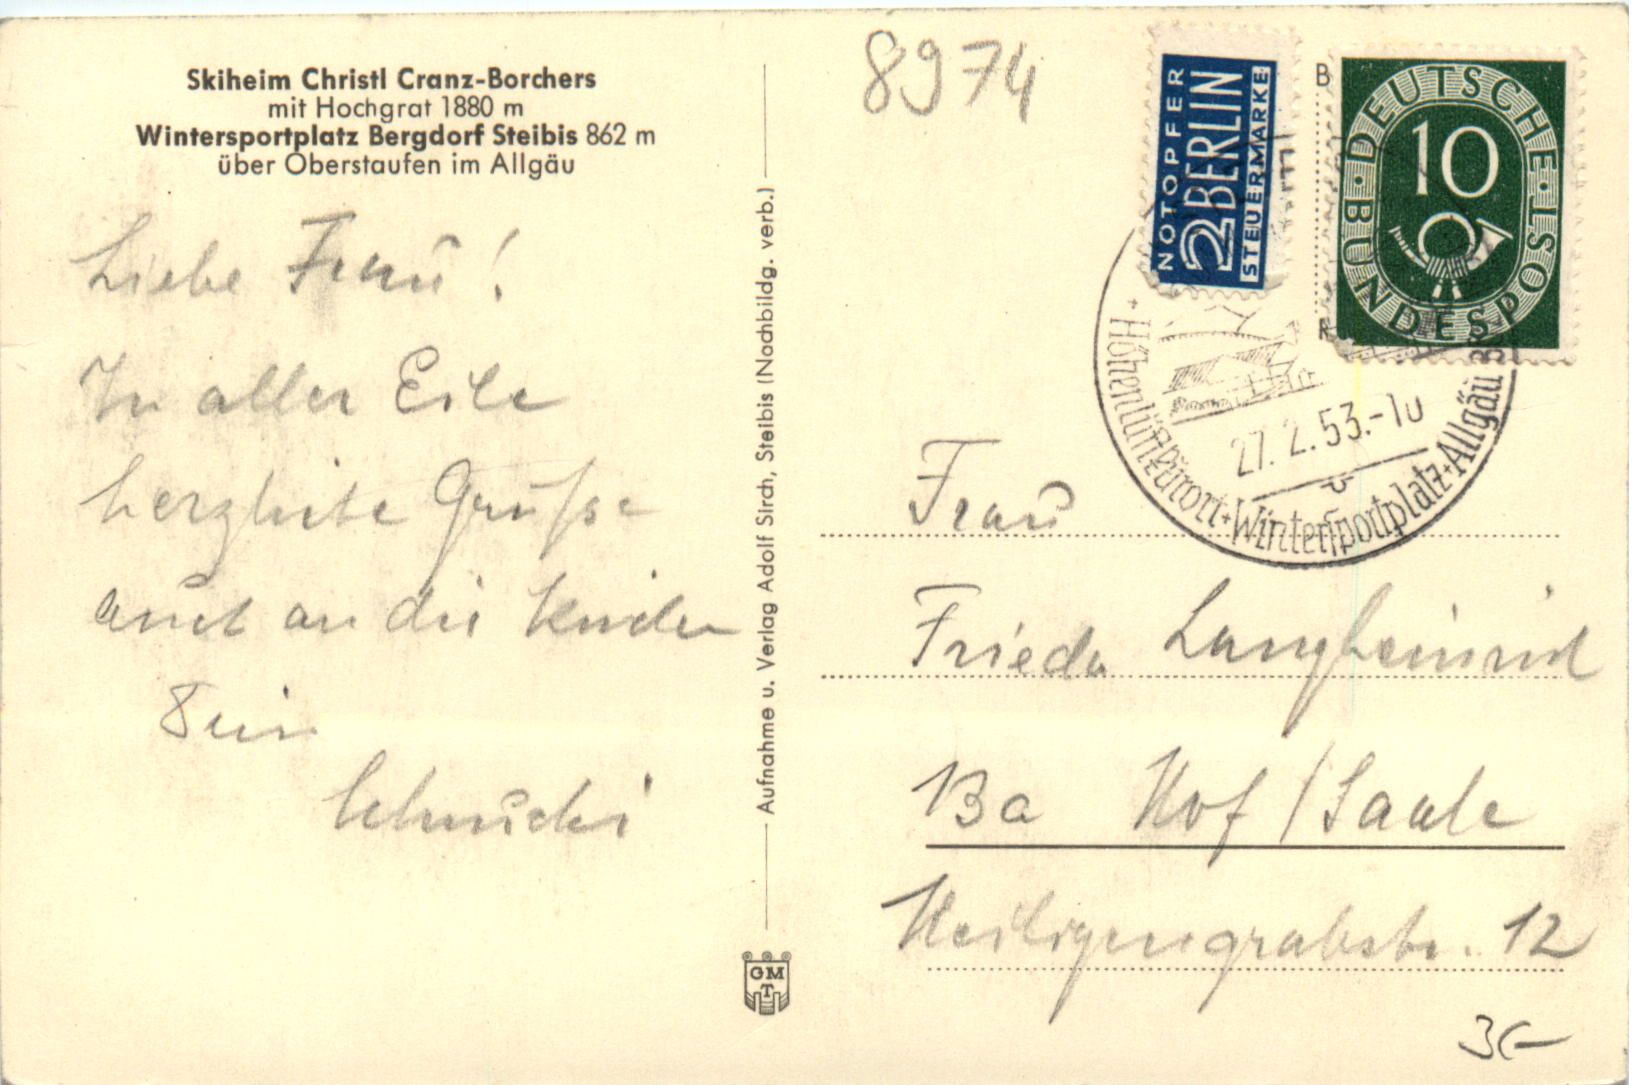 Skiheim Christl Cranz-Borchers
mit Hochgrat 1880 m
Wintersportplatz Bergdorf Steibis 862 m
über Oberstaufen im Allgäu
Liebe Frau!
In aller Eile
herzliche Grüße
auch an die Kinder
Schucki
Aufnahme u. Verlag Adolf Sirch, Steibis (Nachbildg. verb.)
GMT
8974
NOTOPFER
2 BERLIN
STEUERMARKE
DEUTSCHE BUNDESPOST
10
+ Höhenluftkurort + Wintersportplatz + Allgäu
27.2.53.-10
Frau
Frieda Langheinrich
13a Hof / Saale
Heiligengrabstr. 12
3€